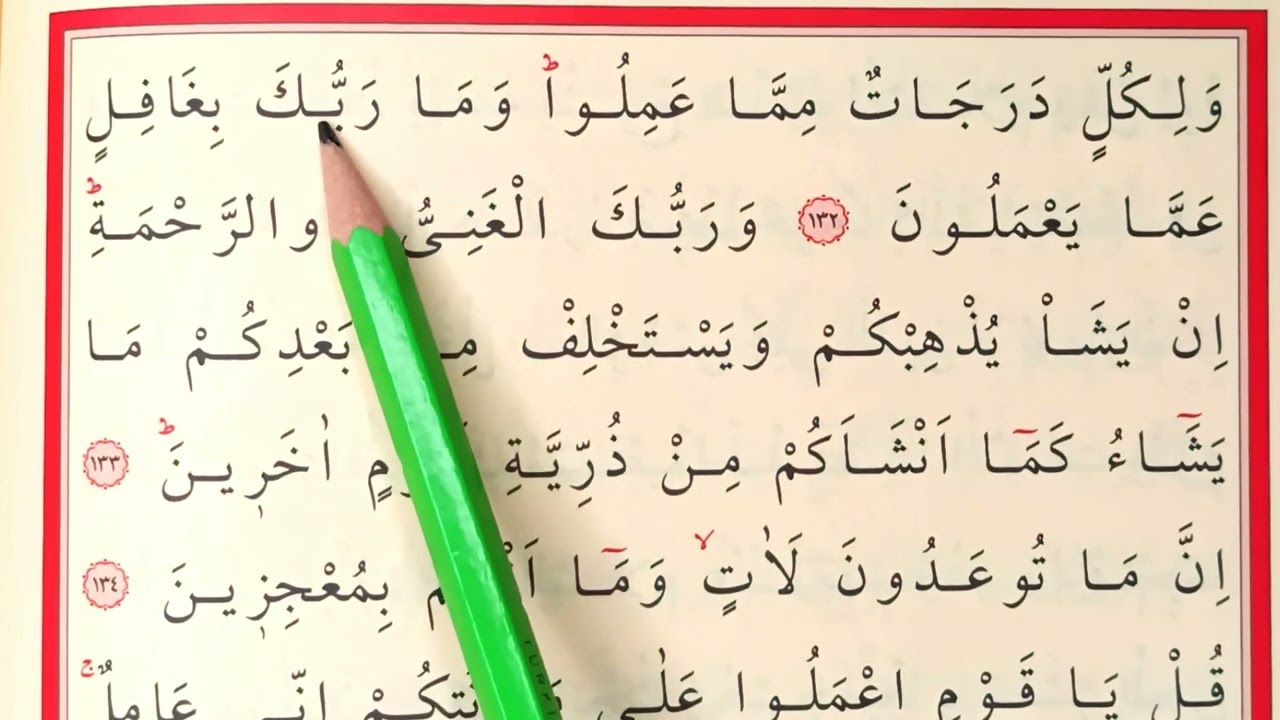 وَلِكُلٍّ دَرَجَاتٌ مِمَّا عَمِلُواۜ وَمَا رَبُّكَ بِغَافِلٍ
عَمَّا يَعْمَلُونَ ﴿١٣٢﴾ وَرَبُّكَ الْغَنِىُّ والرَّحْمَةِۜ
اِنْ يَشَأْ يُذْهِبْكُمْ وَيَسْتَخْلِفْ بَعْدِكُمْ مَا
يَشَٓاءُ كَمَٓا اَنْشَاَكُمْ مِنْ ذُرِّيَّةِ اٰخَرِينَۜ ﴿١٣٣﴾
اِنَّ مَا تُوعَدُونَ لَاٰتٍۙ وَمَٓا بِمُعْجِزِينَ ﴿١٣٤﴾
قُلْ يَا قَوْمِ اعْمَلُوا عَلٰى اِنّ۪ى عَامِلٌۚ